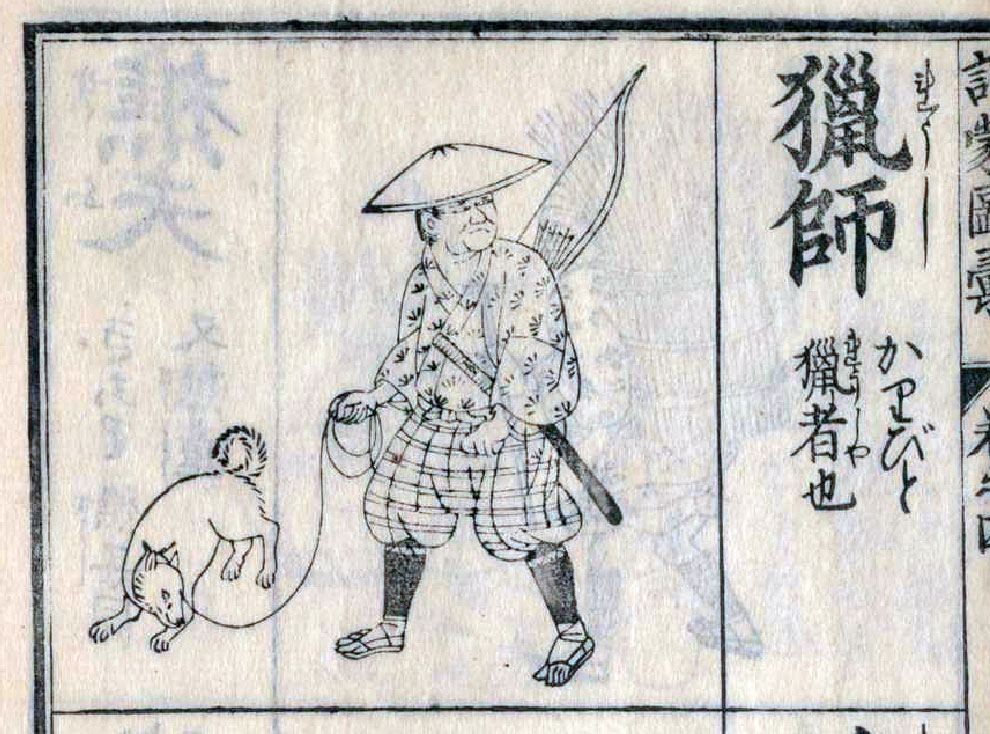 訓蒙圖彙
卷之四
れうし
獵師
かりびと
れうしや
獵者也